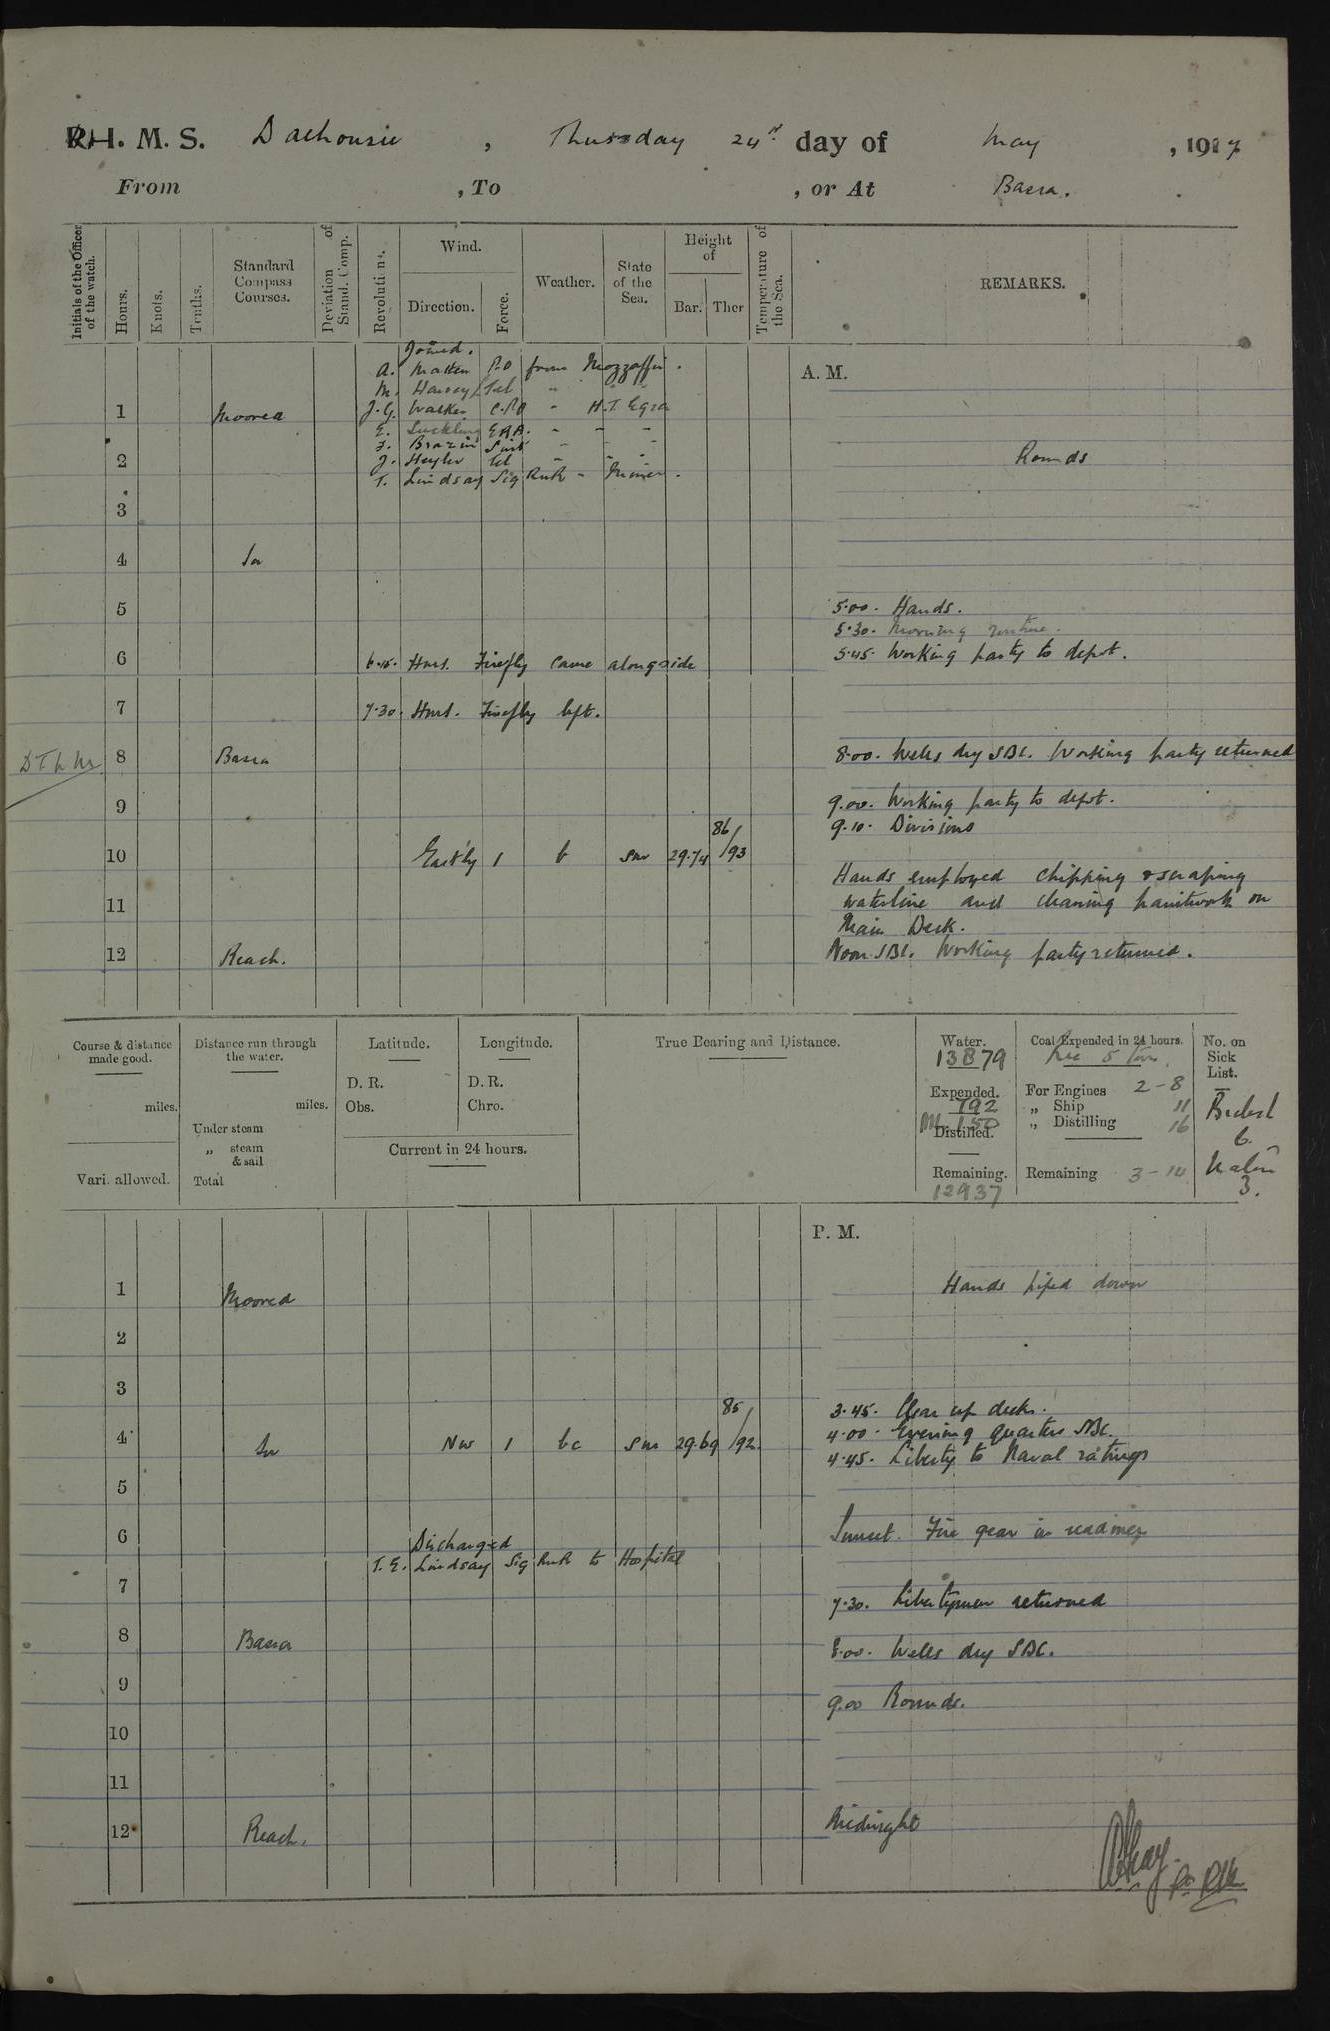 H. M. S. Dalhousie, Thursday 24th day of May, 1917
From , To , or At Basra.
Initials of the Officer of the watch.
Hours.
Knots.
Tenths.
Standard Compass Courses.
Deviation of Stand. Comp.
Revolutions.
Wind.
Direction.
Force.
Weather.
State of the Sea.
Height of
Bar. Ther
Temperature of the Sea.
REMARKS.
A. M.
Joined.
A. Matten P.O from Mozzaffir.
M. Harvey Tel " " "
1 Moored J.G. Walker C.P.O " H.T. Egra
E. Suckling ERA. " " "
J. Brazin " " "
2 J. Heyler Tel " " " Rounds
T. Lindsay Sig RNR " Miner.
3
4 In
5 5.00. Hands.
5.30. Morning routine.
6 6.15. Hms. Firefly came alongside 5.45. Working party to depot.
7 7.30. Hms. Firefly left.
8 Basra 8.00. Wells dry SBC. Working party returned
9 9.00. Working party to depot.
9.10. Divisions
10 East'ly 1 b sm 29.74 86/93
Hands employed chipping & scraping
11 waterline and cleaning paintwork on
Main Deck.
12 Reach. Noon SBC. Working party returned.
Course & distance made good.
miles.
Vari. allowed.
Distance run through the water.
miles.
Under steam
„ steam & sail
Total
Latitude.
D. R.
Obs.
Longitude.
D. R.
Chro.
Current in 24 hours.
True Bearing and Distance.
Water.
13879
Expended.
792
150
Distilled.
Remaining.
12937
Coal Expended in 24 hours.
Rec 5 tons.
For Engines 2-8
„ Ship 11
„ Distilling 16
Remaining 3-14
No. on Sick List.
6.
3.
P. M.
1 Moored Hands piped down
2
3
3.45. Clear up decks.
4 In NW 1 bc sm 29.69 85/92 4.00. Evening quarters SBC.
4.45. Liberty to Naval ratings
5
6 Discharged Sunset. Fire gear in readiness
T. E. Lindsay Sig RNR to Hospital
7 7.30. Libertymen returned
8 Basra 8.00. Wells dry SBC.
9 9.00 Rounds.
10
11
12 Reach. Midnight